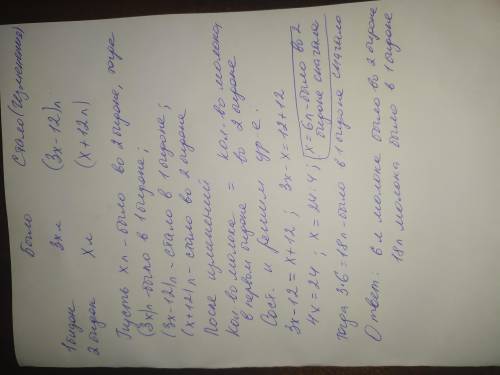 Было Стало (Изменения)
1 бидон 3х л (3х-12)л
2 бидон х л (х+12л)
Пусть х л - было во 2 бидоне, тогда
(3х)л - было в 1 бидоне;
(3х-12)л - стало в 1 бидоне;
(х+12)л - стало во 2 бидоне
После изменений
Кол. во молока = кол. во молока
в первом бидоне во 2 бидоне
Сост. и решим ур-е.
3х-12=х+12; 3х-х=12+12
4х=24; х=24:4; х=6л - было во 2
бидоне сначала
тогда 3·6=18л - было в 1 бидоне сначала
Ответ: 6л молока было во 2 бидоне
18л молока было в 1 бидоне